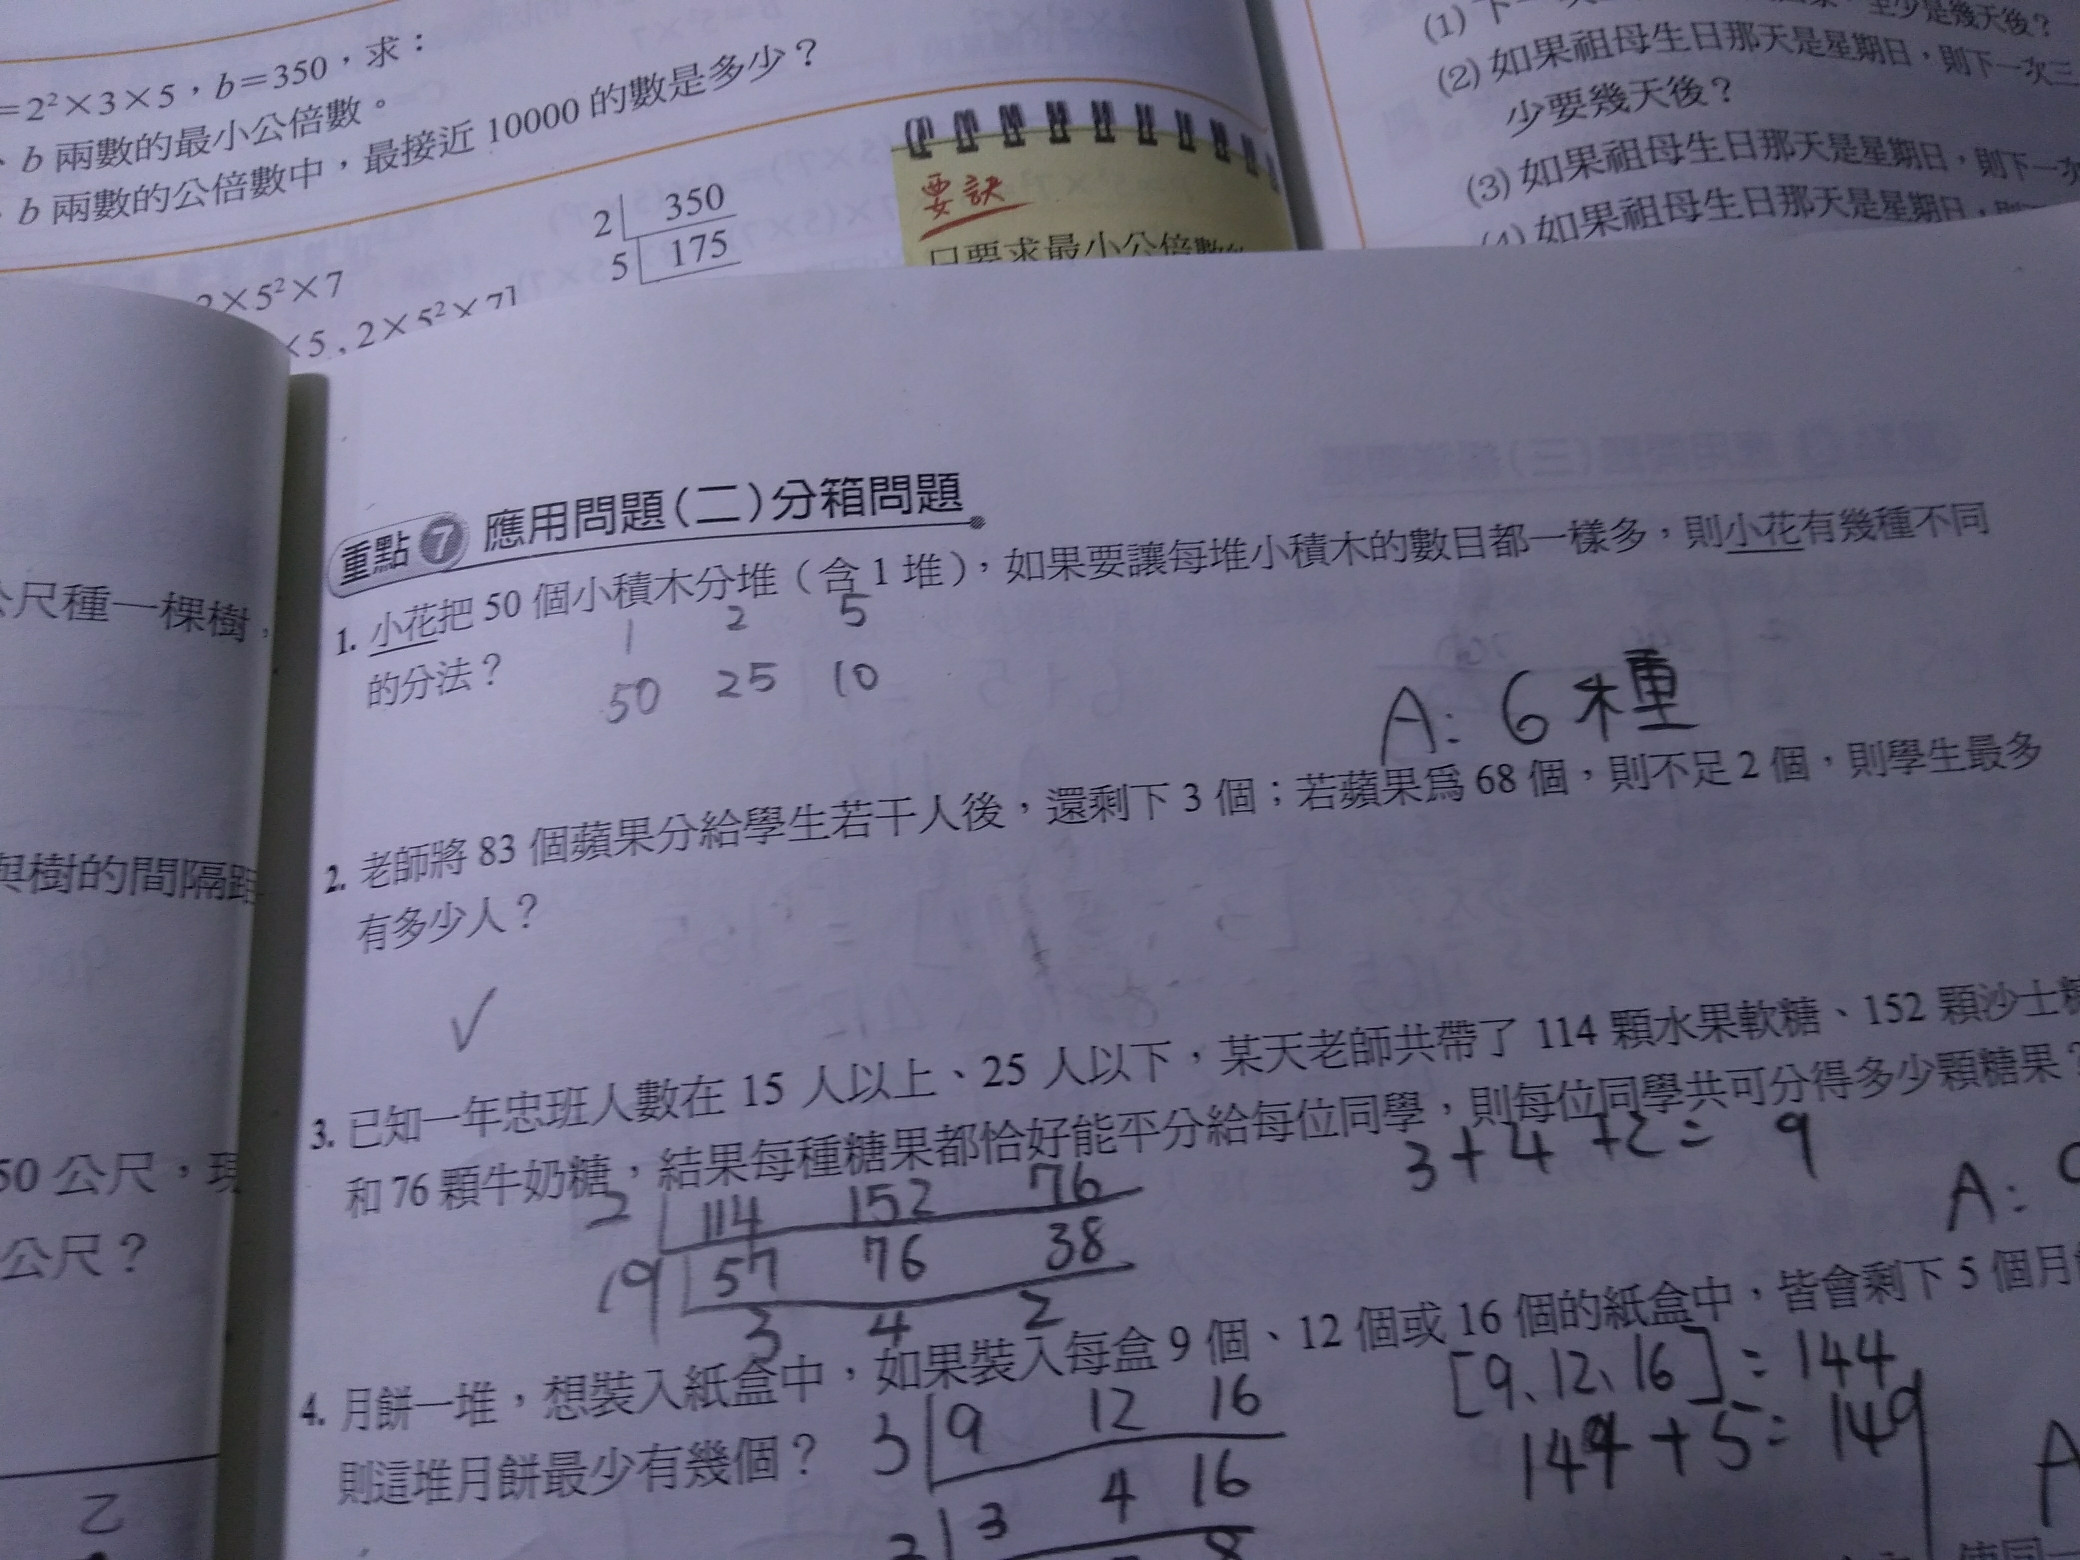 =2²×3×5，b=350，求：
b 兩數的最小公倍數。
b 兩數的公倍數中，最接近 10000 的數是多少？
2 350
5 175
2×5²×7
×5 , 2×5²×7]
要訣
只要求最小公倍數
(1) 下一次 至少是幾天後？
(2) 如果祖母生日那天是星期日，則下一次三
少要幾天後？
(3) 如果祖母生日那天是星期日，則下一次
(4) 如果祖母生日那天是星期日，則
公尺種一棵樹，
與樹的間隔距
50 公尺，現
公尺？
乙
重點 7 應用問題(二)分箱問題
1. 小花把 50 個小積木分堆（含 1 堆），如果要讓每堆小積木的數目都一樣多，則小花有幾種不同
的分法？
1 2 5
50 25 10
A: 6 種
2. 老師將 83 個蘋果分給學生若干人後，還剩下 3 個；若蘋果為 68 個，則不足 2 個，則學生最多
有多少人？
3. 已知一年忠班人數在 15 人以上、25 人以下，某天老師共帶了 114 顆水果軟糖、152 顆沙士糖
和 76 顆牛奶糖，結果每種糖果都恰好能平分給每位同學，則每位同學共可分得多少顆糖果？
3+4+2= 9
2 114 152 76
19 57 76 38
3 4 2
A:
4. 月餅一堆，想裝入紙盒中，如果裝入每盒 9 個、12 個或 16 個的紙盒中，皆會剩下 5 個月
則這堆月餅最少有幾個？
[9、12、16]=144
144+5=149
A
3 9 12 16
3 4 16
8